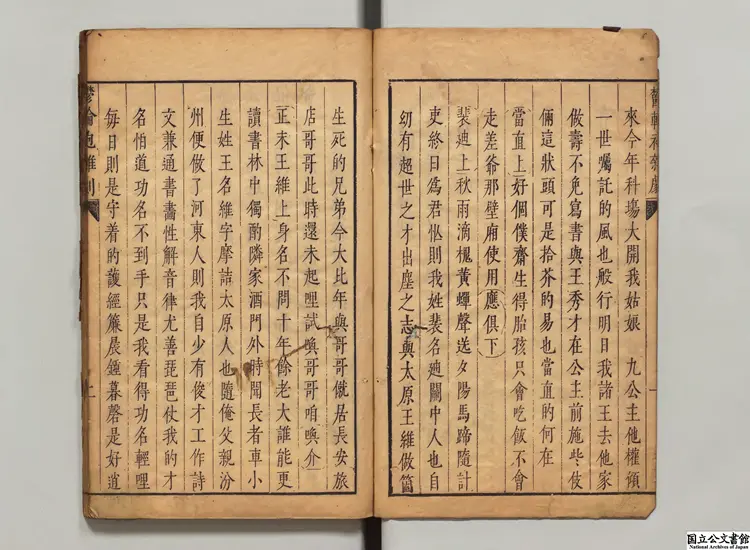 來今年科場大開我姑娘 九公主他權傾
一世囑託的風也般行明日我諸王去他家
做壽不免寫書與王秀才在公主前施些伎
倆這狀頭可是拾芥的易也當直的何在
當直上好個僕齋生得胎孩只會吃飯不會
走差爺那壁廂使用應俱下
裴迪上秋雨滴槐黃蟬聲送夕陽馬蹄隨計
吏終日爲君忙則我姓裴名迪關中人也自
幼有超世之才出塵之志與太原王維做箇
生死的兄弟今大比年與哥哥僦居長安旅
店哥哥此時還未起哩試喚哥哥咱喚介
正末王維上身名不問十年餘老大誰能更
讀書林中獨酌隣家酒門外時聞長者車小
生姓王名維字摩詰太原人也隨俺父親汾
州便做了河東人則我自少有俊才工作詩
文兼通書畵性解音律尤善琵琶仗我的才
名怕道功名不到手只是我看得功名輕哩
每日則是守着的護經簾晨鐘暮磬是好道
鬱輪袍雜劇
上
國立公文書館
National Archives of Japan